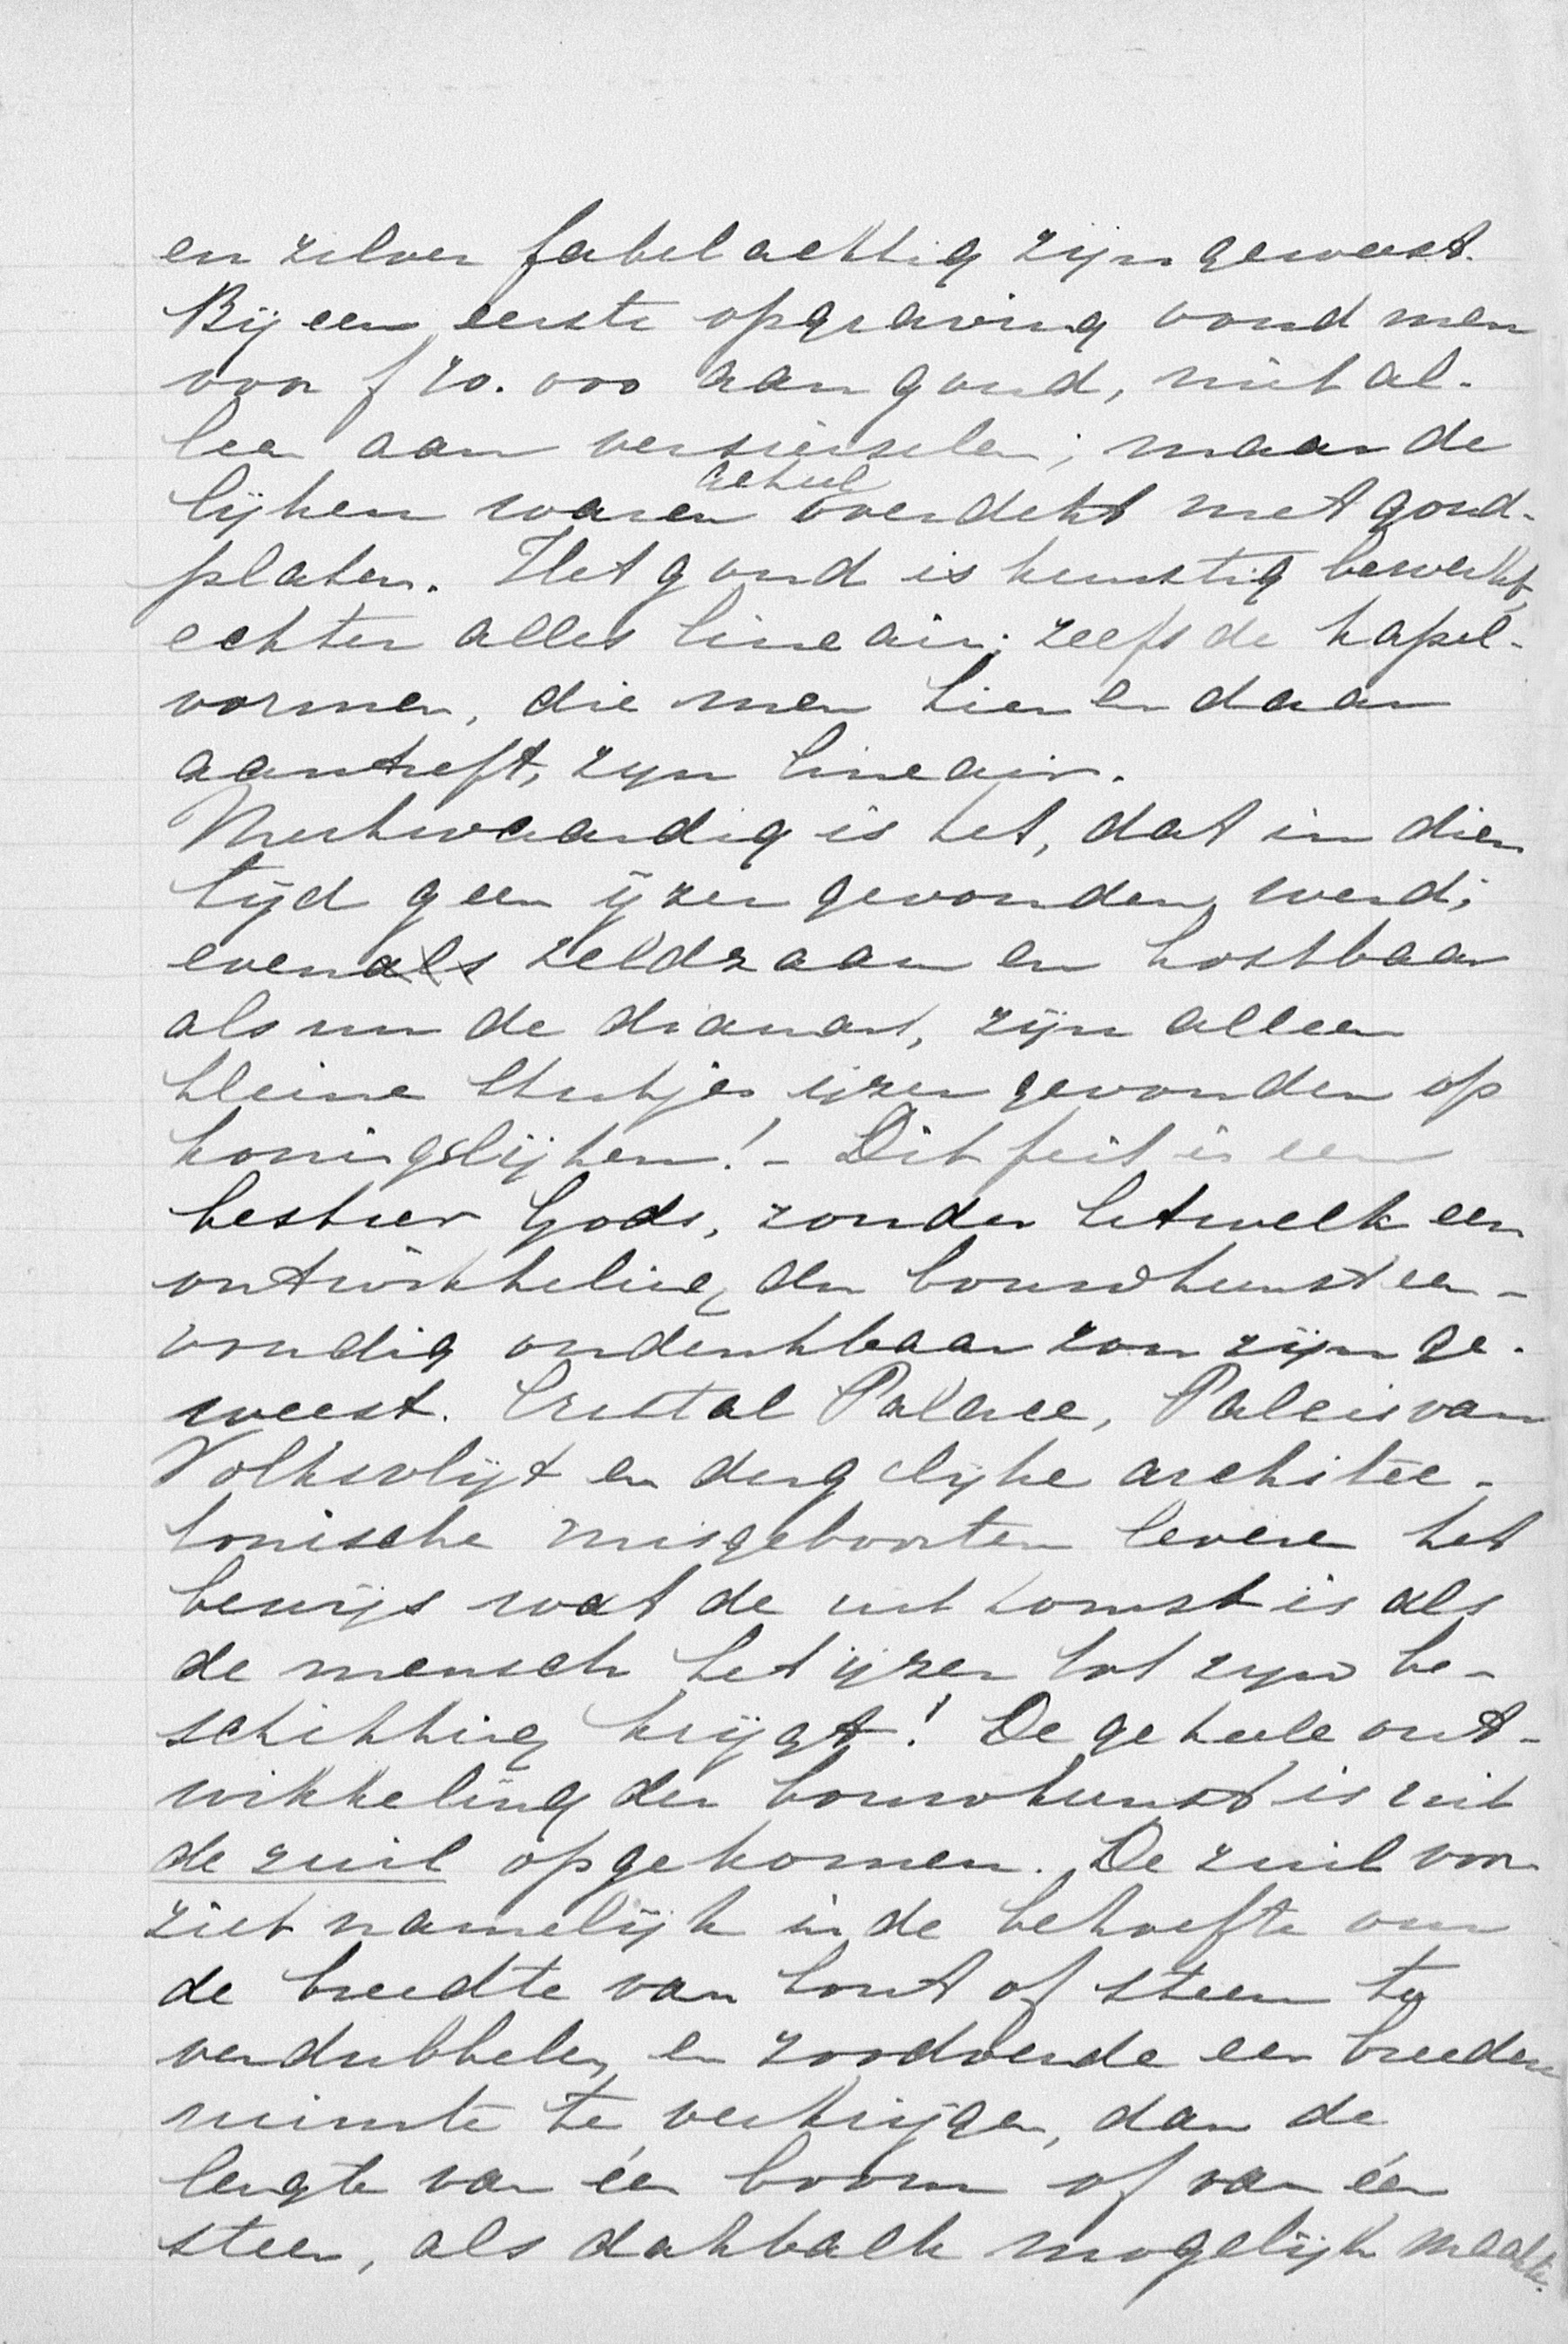 en zilver fabelachtig zijn geweest.
Bij een eerste opgraving vond men
voor f 70.000 aan goud, niet al-
leen aan versierselen; maar de
lijken waren geheel overdekt met goud-
platen. Het goud is kunstig bewerkt,
echter alles lineair; zelfs de kapel-
vormen, die men hier en daar
aantreft, zyn lineair.
Merkwaardig is het, dat in dien
tijd geen ijzer gevonden werd;
even zeldzaam en kostbaar
als nu de diamant, zijn alleen
kleine stukjes ijzer gevonden op
koningslijken! - Dit feit is een
bestier Gods, zonder hetwelk een
ontwikkeling der bouwkunst een-
voudig ondenkbaar zou zijn ge-
weest. Cristal Palace, Paleis van
Volksvlijt en dergelijke architec-
tonische misgeboorten leveren het
bewijs wat de uitkomst is als
de mensch het ijzer tot zyn be-
schikking krijgt! De geheele ont-
wikkeling der bouwkunst is uit
de zuil opgekomen. De zuil voor-
ziet namelijk in de behoefte om
de breedte van hout of steen te
verdubbelen en zoodoende een breedere
ruimte te verkrijgen, dan de
lengte van één boom of van één
steen, als dakbalk mogelijk maakte.